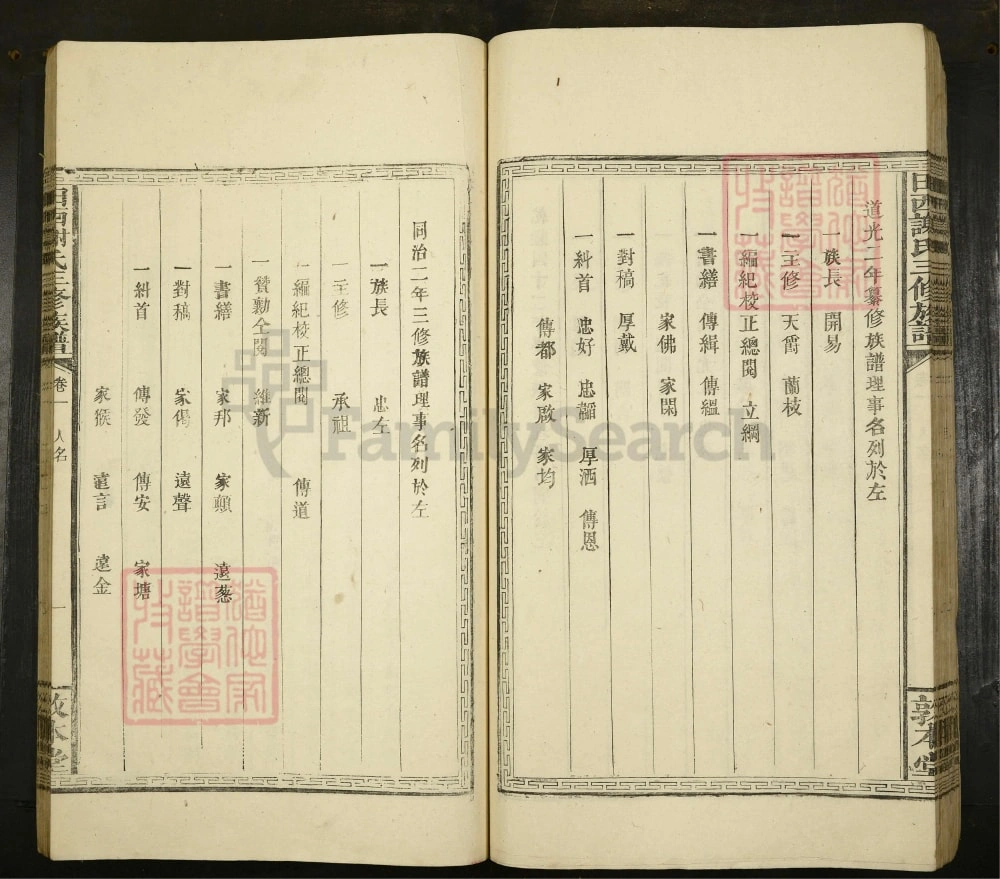 謝氏三修族譜
敦本堂
道光二年纂修族譜理事名列於左
一族長 開易
一主修 天爵 蘭枝
一編紀校正總閱 立綱
一書繕 傳緝 傳緼
家佛 家閑
一對稿 厚戴
一糾首 忠好 忠韜 厚洒 傳恩
傳都 家啟 家均
同治二年三修族譜理事名列於左
一族長 忠左
一主修 承祖
一編紀校正總閱 傳道
一贊勷仝閱 維新
一書繕 家邦 家頫 遠
一對稿 家 遠聲
一糾首 傳發 傳安 家塘
家猴 遠言 遠金
三修族譜
卷一
人名
一
敦本堂
猶他家譜學會特藏
猶他家譜學會特藏
FamilySearch